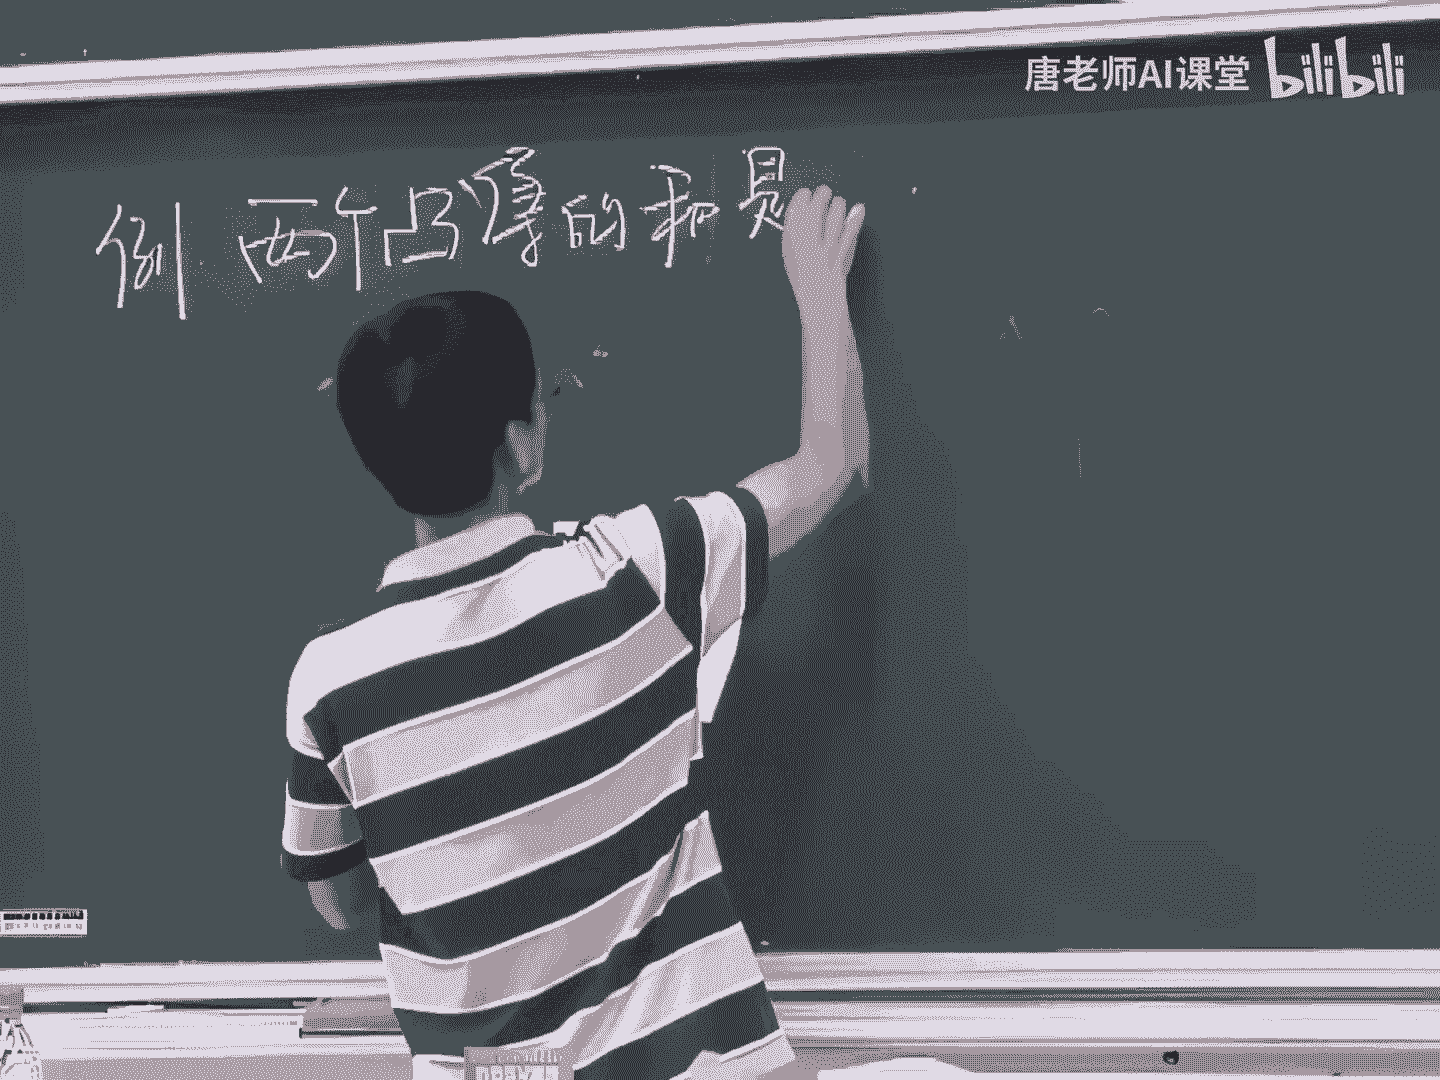 唐老师AI课堂 bilibili
例 两个凸集的和是